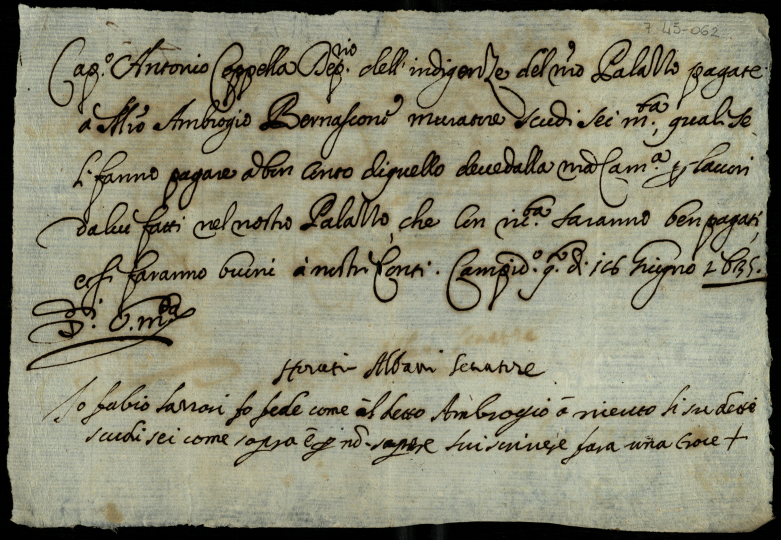 7.45-062
Cap.º Antonio Coppella Dep.rio dell'indigenze del nro Palazzo pagate
a Mro Ambrogio Bernascone muratore scudi sei m.ta, quali se
li fanno pagare a bon conto di quello deve dalla nra Cam.a p lavori
da lui fatti nel nostro Palazzo, che con ric.ta saranno ben pagati,
e si faranno buoni a nostri Conti. Campid.º q.º dì 16 Giugno 1635.
D. 6. m.ta
Horatio Albani Senatore
Io fabio fo fede come al detto Ambrogio a riceuto li su detti
scudi sei come sopra e p nō sapere scrivere fara una Croce +